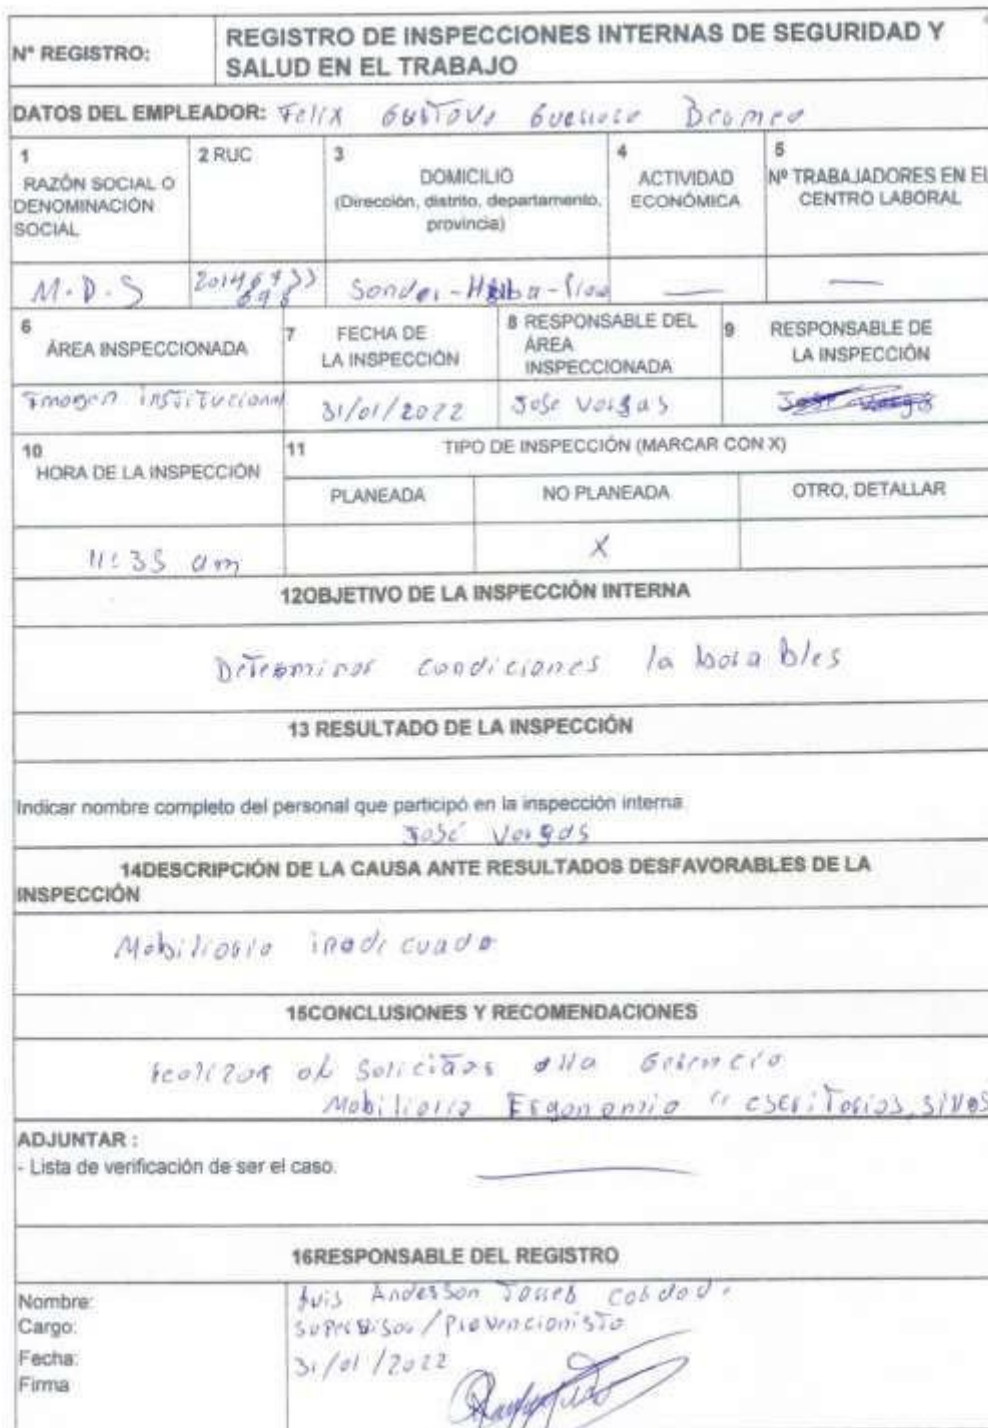 N° REGISTRO:
REGISTRO DE INSPECCIONES INTERNAS DE SEGURIDAD Y
SALUD EN EL TRABAJO
DATOS DEL EMPLEADOR: Felix Gustavo
1
RAZÓN SOCIAL O
DENOMINACIÓN
SOCIAL
2 RUC
3
DOMICILIO
(Dirección, distrito, departamento,
provincia)
4
ACTIVIDAD
ECONÓMICA
5
Nº TRABAJADORES EN El
CENTRO LABORAL
M.D.S
6
ÁREA INSPECCIONADA
7
FECHA DE
LA INSPECCIÓN
8 RESPONSABLE DEL
ÁREA
INSPECCIONADA
9
RESPONSABLE DE
LA INSPECCIÓN
Imagen institucional
31/01/2022
Jose Vargas
10
HORA DE LA INSPECCIÓN
11
TIPO DE INSPECCIÓN (MARCAR CON X)
PLANEADA
NO PLANEADA
OTRO, DETALLAR
11:35 am
X
12OBJETIVO DE LA INSPECCIÓN INTERNA
Determinar condiciones laborables
13 RESULTADO DE LA INSPECCIÓN
Indicar nombre completo del personal que participó en la inspección interna.
José Vargas
14DESCRIPCIÓN DE LA CAUSA ANTE RESULTADOS DESFAVORABLES DE LA
INSPECCIÓN
Mobiliario inadecuado
15CONCLUSIONES Y RECOMENDACIONES
Realizar Solicitar Gerencia
Mobiliario escritorios,
ADJUNTAR :
- Lista de verificación de ser el caso.
16RESPONSABLE DEL REGISTRO
Nombre: Luis Andersson Torres
Cargo: Supervisor/Prevencionista
Fecha: 31/01/2022
Firma